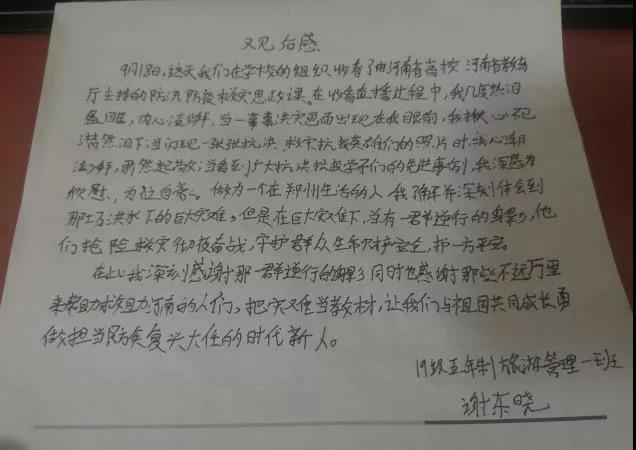 观后感
9月13日,这天我们在学校的组织收看了由河南省高校 河南省教育
厅主持的防汛防疫救灾思政课。在收看直播过程中,我几度热泪
盈眶,内心澎湃,当一幕幕决灾画面出现在我眼前,我揪心不已
潸然泪下;当们现一张张抗洪、救灾抗疫英雄们的照片时,我心潮
澎湃,肃然起敬;当看到广大抗洪抗疫学子们的先进事例,我深感为
欣慰、为之自豪。做为一个在郑州生活的人,我了解并深刻体会到
那场洪水下的巨大灾难。但是在巨大灾难下,总有一群逆行的身影,他
们抢险救灾彻夜奋战,守护群众生命财产安全,护一方平安。
在此我深刻感谢那一群逆行的身影 同时也感谢那些不远万里
来帮助救助河南的人们,把灾难当教材,让我们与祖国共同成长勇
做担当民族复兴大任的时代新人。
19级五年制旅游管理一班
谢东晓